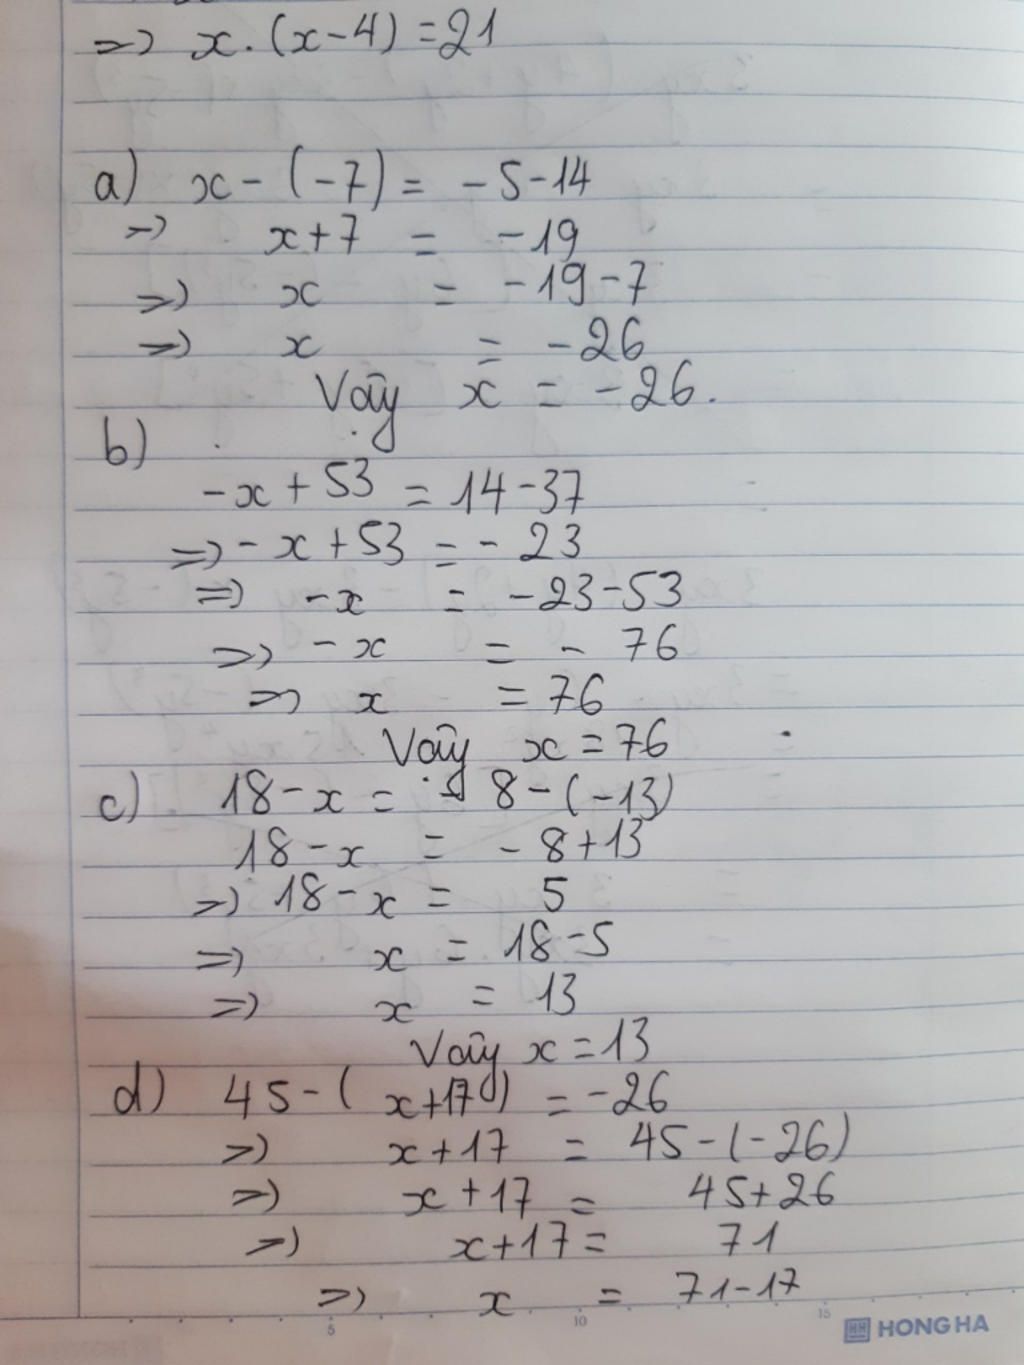 => x.(x-4) = 21
a) x - (-7) = -5-14
=> x+7 = -19
=> x = -19-7
=> x = -26
Vậy x = -26.
b)
-x + 53 = 14-37
=> -x +53 = -23
=> -x = -23-53
=> -x = - 76
=> x = 76
Vậy x = 76
c) 18-x = -8-(-13)
18-x = -8+13
=> 18-x = 5
=> x = 18-5
=> x = 13
Vậy x = 13
d) 45-(x+17) = -26
=> x+17 = 45-(-26)
=> x+17 = 45+26
=> x+17 = 71
=> x = 71-17
5 10 15
HONG HA